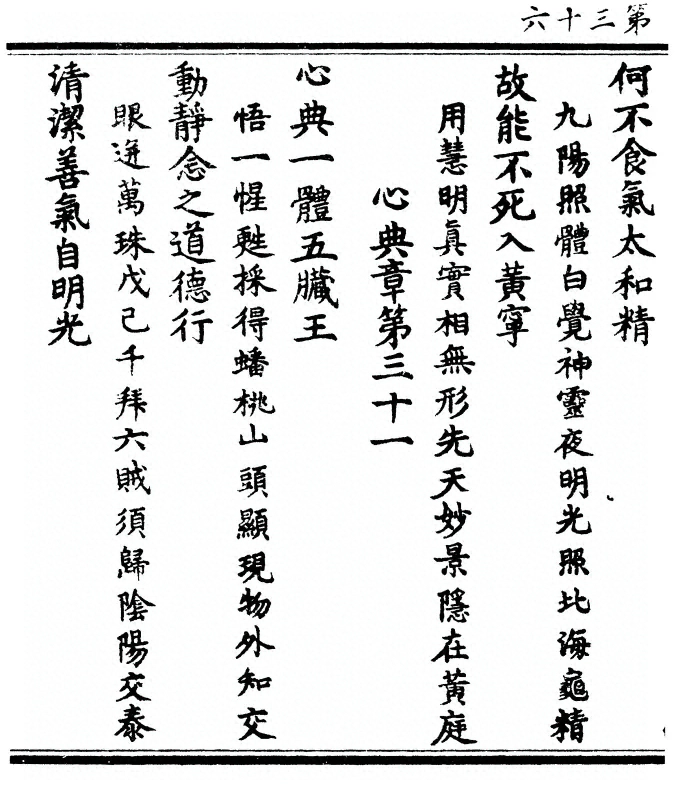 第三十六
何不食氣太和精
九陽照體白覺神靈夜明光照北海龜精
故能不死入黃寧
用慧明眞實相無形先天妙景隱在黃庭
心典章第三十一
心典一體五臟王
悟一惺甦採得蟠桃山頭顯現物外知交
動靜念之道德行
眼迸萬珠戊己千拜六賊須歸陰陽交泰
清潔善氣自明光